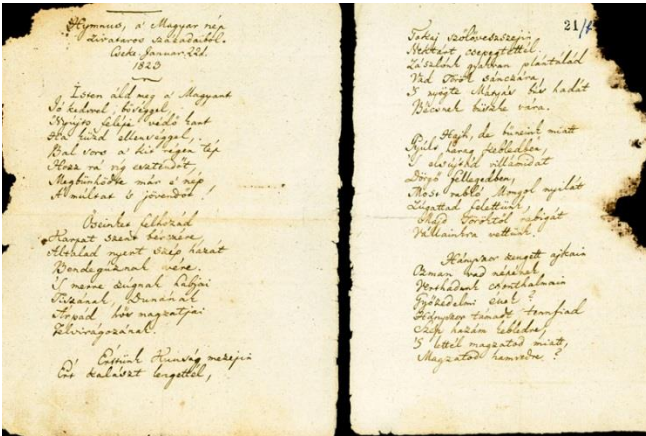 Hymnus, a' Magyar nép
zivataros századaiból.
Cseke Januar. 22d.
1823
Isten áld meg a' Magyart
Jó kedvvel, bőséggel,
Nyújts feléje védő kart
Ha küzd ellenséggel,
Bal sors a' kit régen tép
Hozz rá víg esztendőt,
Megbűnhődte már e' nép
A' multat 's jövendőt!
Őseinket felhozád
Kárpát szent bérczére,
Általad nyert szép hazát
Bendegúznak vére.
'S merre zúgnak habjai
Tiszának, Dunának
Árpád hős magzatjai
Felvirágozának.
Értünk Kunság mezején
Ért kalászt lengettél,
21/
Tokaj szőlővesszején
Nektárt csepegtettél.
Zászlónk gyakran plántálád
Vad Török sánczára,
'S nyögte Mátyás bús hadát
Bécsnek büszke vára.
Hajh, de bűneink miatt
Gyúlt harag kebledben,
'S elsújtád villámidat
Dörgő fellegedben,
Most rabló Mongol nyilát
Zúgattad felettünk,
Majd Töröktől rabigát
Vállainkra vettünk.
Hányszor zengett ajkain
Ozman vad népének
Vert hadunk csonthalmain
Győzedelmi ének?
Hányszor támadt tennfiad
Szép hazám kebledre,
'S lettél magzatod miatt,
Magzatod hamvedre?